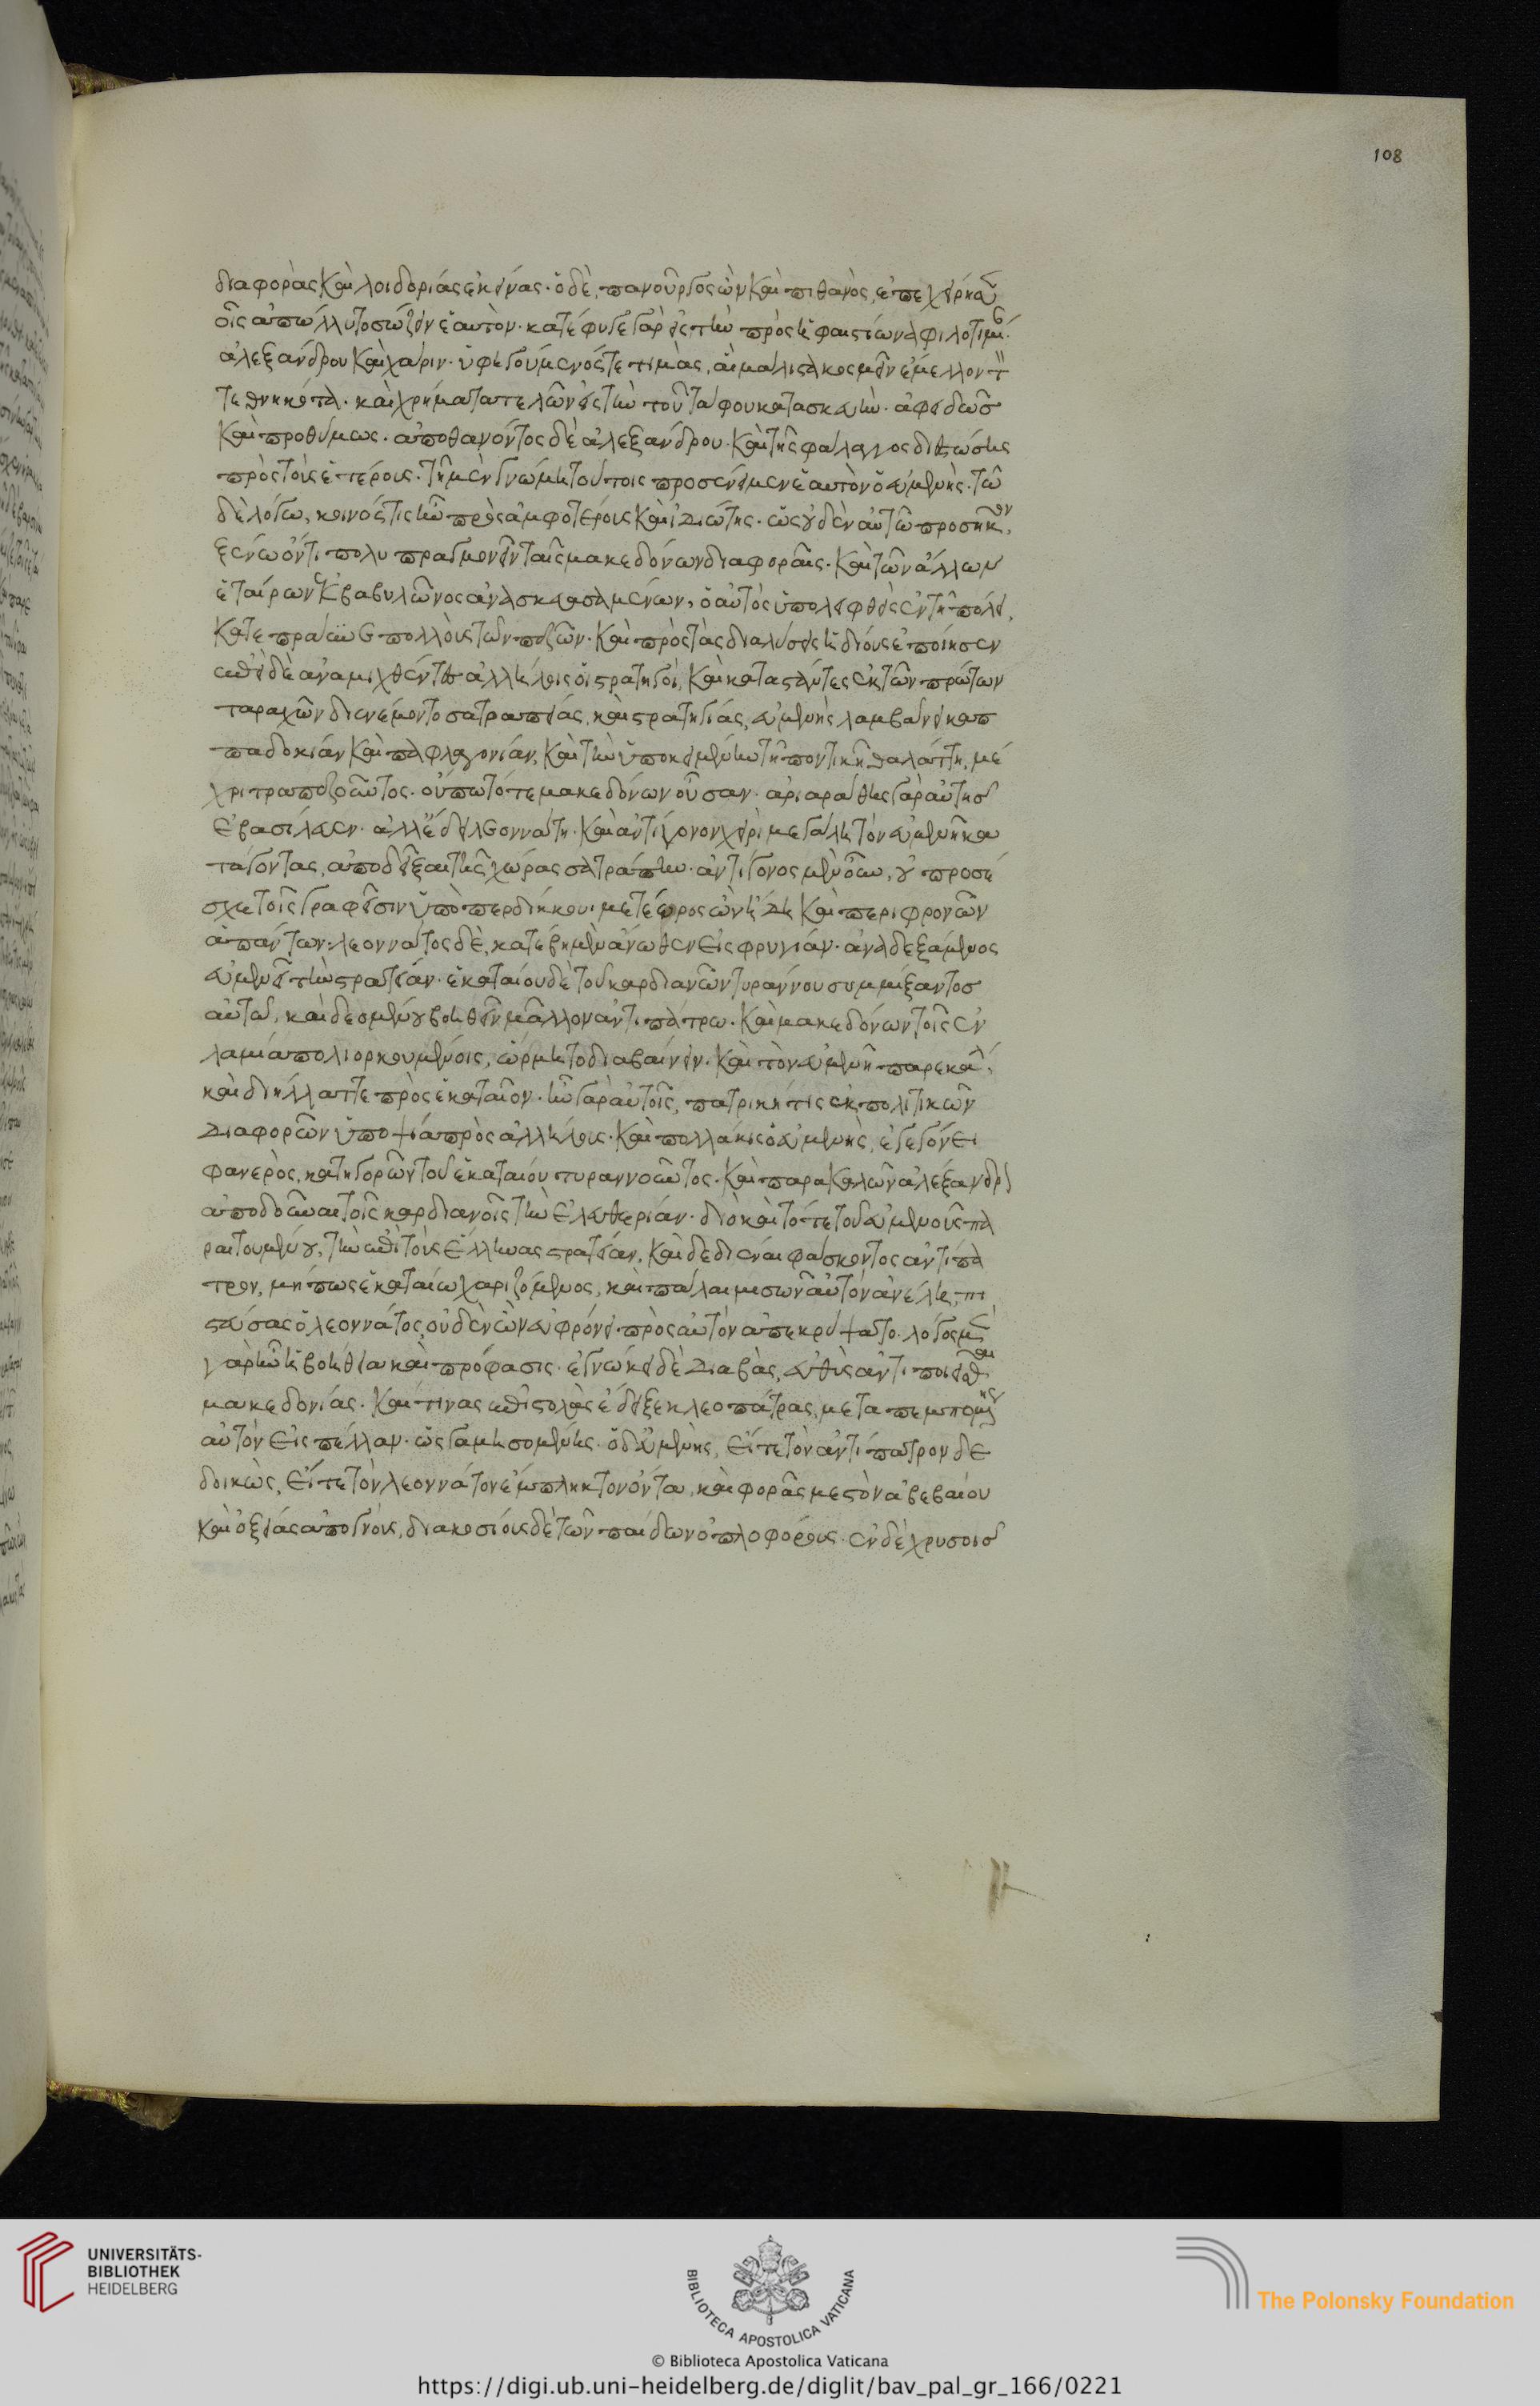 108
διαφορὰς καὶ λοιδορίας ἐκείνας. ὁ δὲ, πανοῦργος ὢν καὶ πιθανὸς, ἐπεχείρησεν
οἷς ἀπώλλυτο σώζειν ἑαυτόν. κατέφυγε γὰρ εἰς τὴν πρὸς ἡφαιστίωνα φιλοτιμίαν
ἀλεξάνδρου καὶ χάριν. ὑφηγούμενός τε τιμὰς, αἳ μάλιστα κοσμεῖν ἔμελλον τ
τεθνηκότα. καὶ χρήματα τελῶν εἰς τὴν τοῦ τάφου κατασκευὴν. ἀφειδῶς
καὶ προθύμως. ἀποθανόντος δὲ ἀλεξάνδρου. καὶ τῆς φάλαγγος διεστώσης
πρὸς τοὺς ἑτέρους. τῇ μὲν γνώμῃ τούτοις προσένειμεν ἑαυτὸν ὁ εὐμενὴς. τῷ
δὲ λόγῳ, κοινός τις ἦν πρὸς ἀμφοτέρους καὶ ἰδιώτης. ὡς οὐδὲν αὐτῷ προσῆκον,
ξένῳ ὄντι πολυπραγμονεῖν ταῖς μακεδόνων διαφοραῖς. καὶ τῶν ἄλλων
ἑταίρων ἐκ βαβυλῶνος ἀνασκευασαμένων, ὁ αὐτὸς ὑπολειφθεὶς ἐν τῇ πόλει,
κατεπράϋνε πολλοὺς τῶν πεζῶν. καὶ πρὸς τὰς διαλύσεις ἡδίους ἐποίησεν
ἐπεὶ δὲ ἀναμιχθέντες ἀλλήλοις οἱ στρατηγοὶ, καὶ καταστάντες ἐκ τῶν πρώτων
ταραχῶν διενέμοντο σατραπείας, καὶ στρατηγίας, εὐμενὴς λαμβάνει καπ
παδοκίαν καὶ παφλαγονίαν, καὶ τὴν ὑποκειμένην τῇ ποντικῇ θαλάττῃ, μέ
χρι τραπεζοῦντος. οὔπω τότε μακεδόνων οὖσαν. ἀριαράθης γὰρ αὐτῆς
ἐβασίλευεν. ἀλλ' ἔδει λεοννάτῃ. καὶ ἀντίγονον χειρὶ μεγάλῃ τὸν εὐμενῆ κα
τάγοντας, ἀποδεῖξαι τῆς χώρας σατράπην. ἀντίγονος μὲν οὖν, οὐ προσέ
σχε τοῖς γραφεῖσιν ὑπὸ περδίκκου. μετέωρος ὢν ἤδη καὶ περιφρονῶν
ἁπάντων. λεοννάτος δὲ, κατέβη μὲν ἄνωθεν εἰς φρυγίαν. ἀναδεξάμενος
εὐμενεῖ τὴν στρατείαν. ἑκαταίου δὲ τοῦ καρδιανῶν τυράννου συμμίξαντος
αὐτῷ, καὶ δεομένου βοηθεῖν μᾶλλον ἀντιπάτρῳ. καὶ μακεδόνων τοῖς ἐν
λαμίᾳ πολιορκουμένοις, ὥρμητο διαβαίνειν. καὶ τὸν εὐμενῆ παρεκάλει
καὶ διήλλαττε πρὸς ἑκαταῖον. ἦν γὰρ αὐτοῖς, πατρική τις ἐκ πολιτικῶν
διαφορῶν ὑποψία πρὸς ἀλλήλους. καὶ πολλάκις ὁ εὐμενὴς, ἐγεγόνει
φανερὸς, κατηγορῶν τοῦ ἑκαταίου τυραννοῦντος. καὶ παρακαλῶν ἀλέξανδρ
ἀποδοῦναι τοῖς καρδιανοῖς τὴν ἐλευθερίαν. διὸ καὶ τότε τοῦ εὐμενοῦς πα
ραιτουμένου, τὴν ἐπὶ τοὺς ἕλληνας στρατείαν, καὶ δεδιέναι φάσκοντος ἀντίπα
τρον, μή πως ἑκαταίῳ χαριζόμενος, καὶ πάλαι μισῶν αὐτὸν ἀνέλῃ, πι
στεύσας ὁ λεοννάτος, οὐδὲν ὧν εὐφρόνει πρὸς αὐτὸν ἀπεκρύψατο. λόγος μὲν
γὰρ ἦν ἡ βοήθεια καὶ πρόφασις. ἐγνώκει δὲ διαβὰς, εὐθὺς ἀντιποιεῖσθαι
μακεδονίας. καί τινας ἐπιστολὰς ἔδειξε κλεοπάτρας, μεταπεμπομένης
αὐτὸν εἰς πέλλαν. ὡς γαμησομένης. ὁ δ' εὐμενὴς, εἴτε τὸν ἀντίπατρον δε
δοικὼς, εἴτε τὸν λεοννάτον ἔμπληκτον ὄντα, καὶ φορᾶς μεστὸν ἀβεβαίου
καὶ ὀξείας ἀπογνοὺς, διακοσίους δὲ τῶν παίδων ὁπλοφόρους. ἐν δὲ χρυσοῖς
UNIVERSITÄTS-
BIBLIOTHEK
HEIDELBERG
BIBLIOTECA APOSTOLICA VATICANA
The Polonsky Foundation
© Biblioteca Apostolica Vaticana
https://digi.ub.uni-heidelberg.de/diglit/bav_pal_gr_166/0221